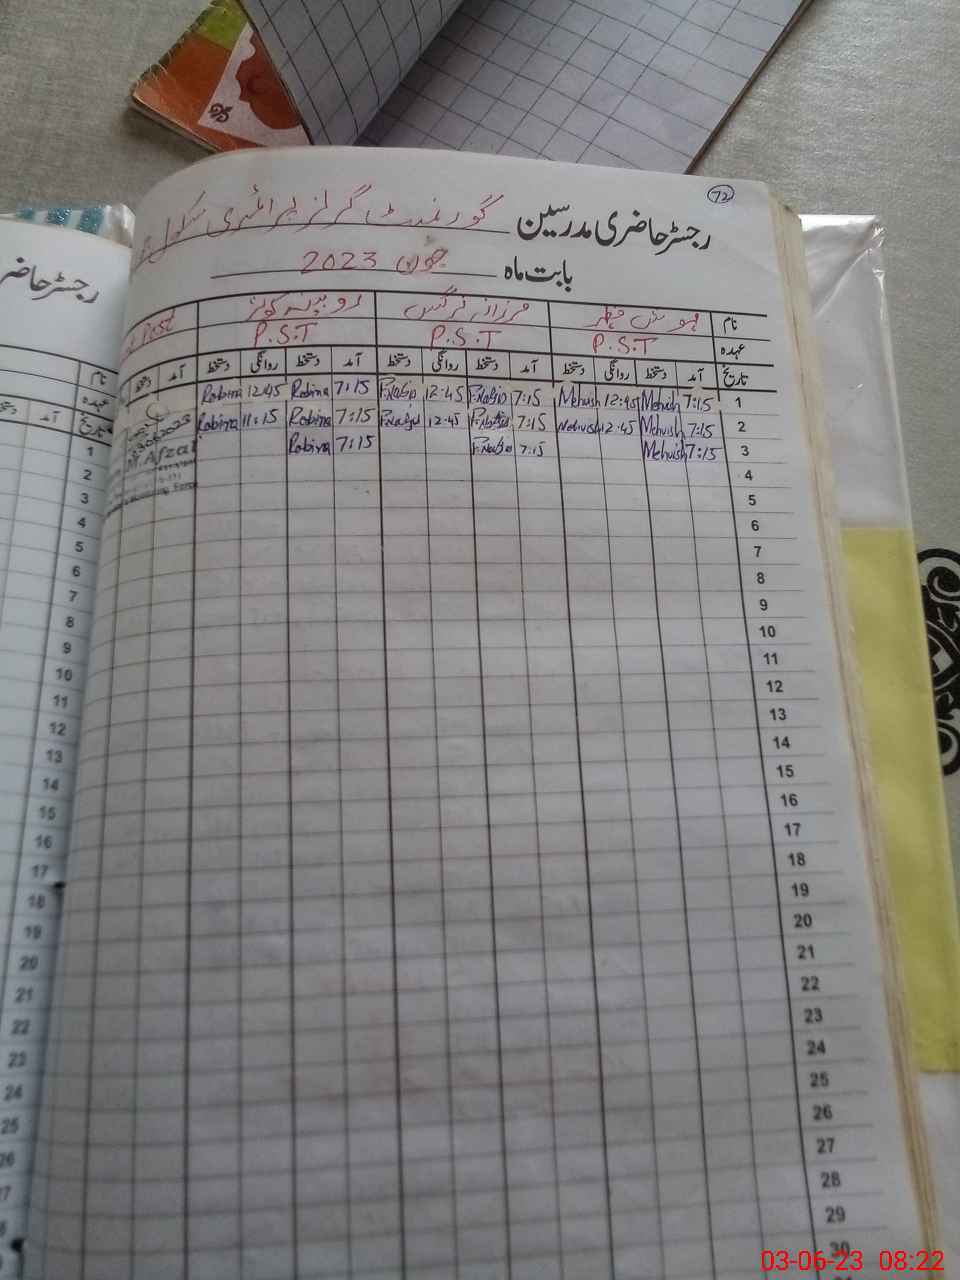 72
رجسٹر حاضری مدرسین گورنمنٹ گرلز پرائمری سکول
بابت ماہ جون 2023
نام مہوش مظہر فرزانہ نرگس روبینہ کوثر Post
عہدہ P.S.T P.S.T P.S.T
تاریخ آمد دستخط روانگی دستخط آمد دستخط روانگی دستخط آمد دستخط روانگی دستخط آمد دستخط
1 7:15 Mehvish 12:45 Mehvish 7:15 12:45 7:15 Robina 12:45 Robina
2 7:15 Mehvish 12:45 Mehvish 7:15 12:45 7:15 Robina 11:15 Robina
3 7:15 Mehvish 7:15 7:15 Robina
M. Afzal
4
5
6
7
8
9
10
11
12
13
14
15
16
17
18
19
20
21
22
23
24
25
26
27
28
29
30
رجسٹر حاضر
نام
عہدہ
تاریخ آمد
1
2
3
4
5
6
7
8
9
10
11
12
13
14
15
16
17
18
19
20
21
22
23
24
25
26
03-06-23 08:22